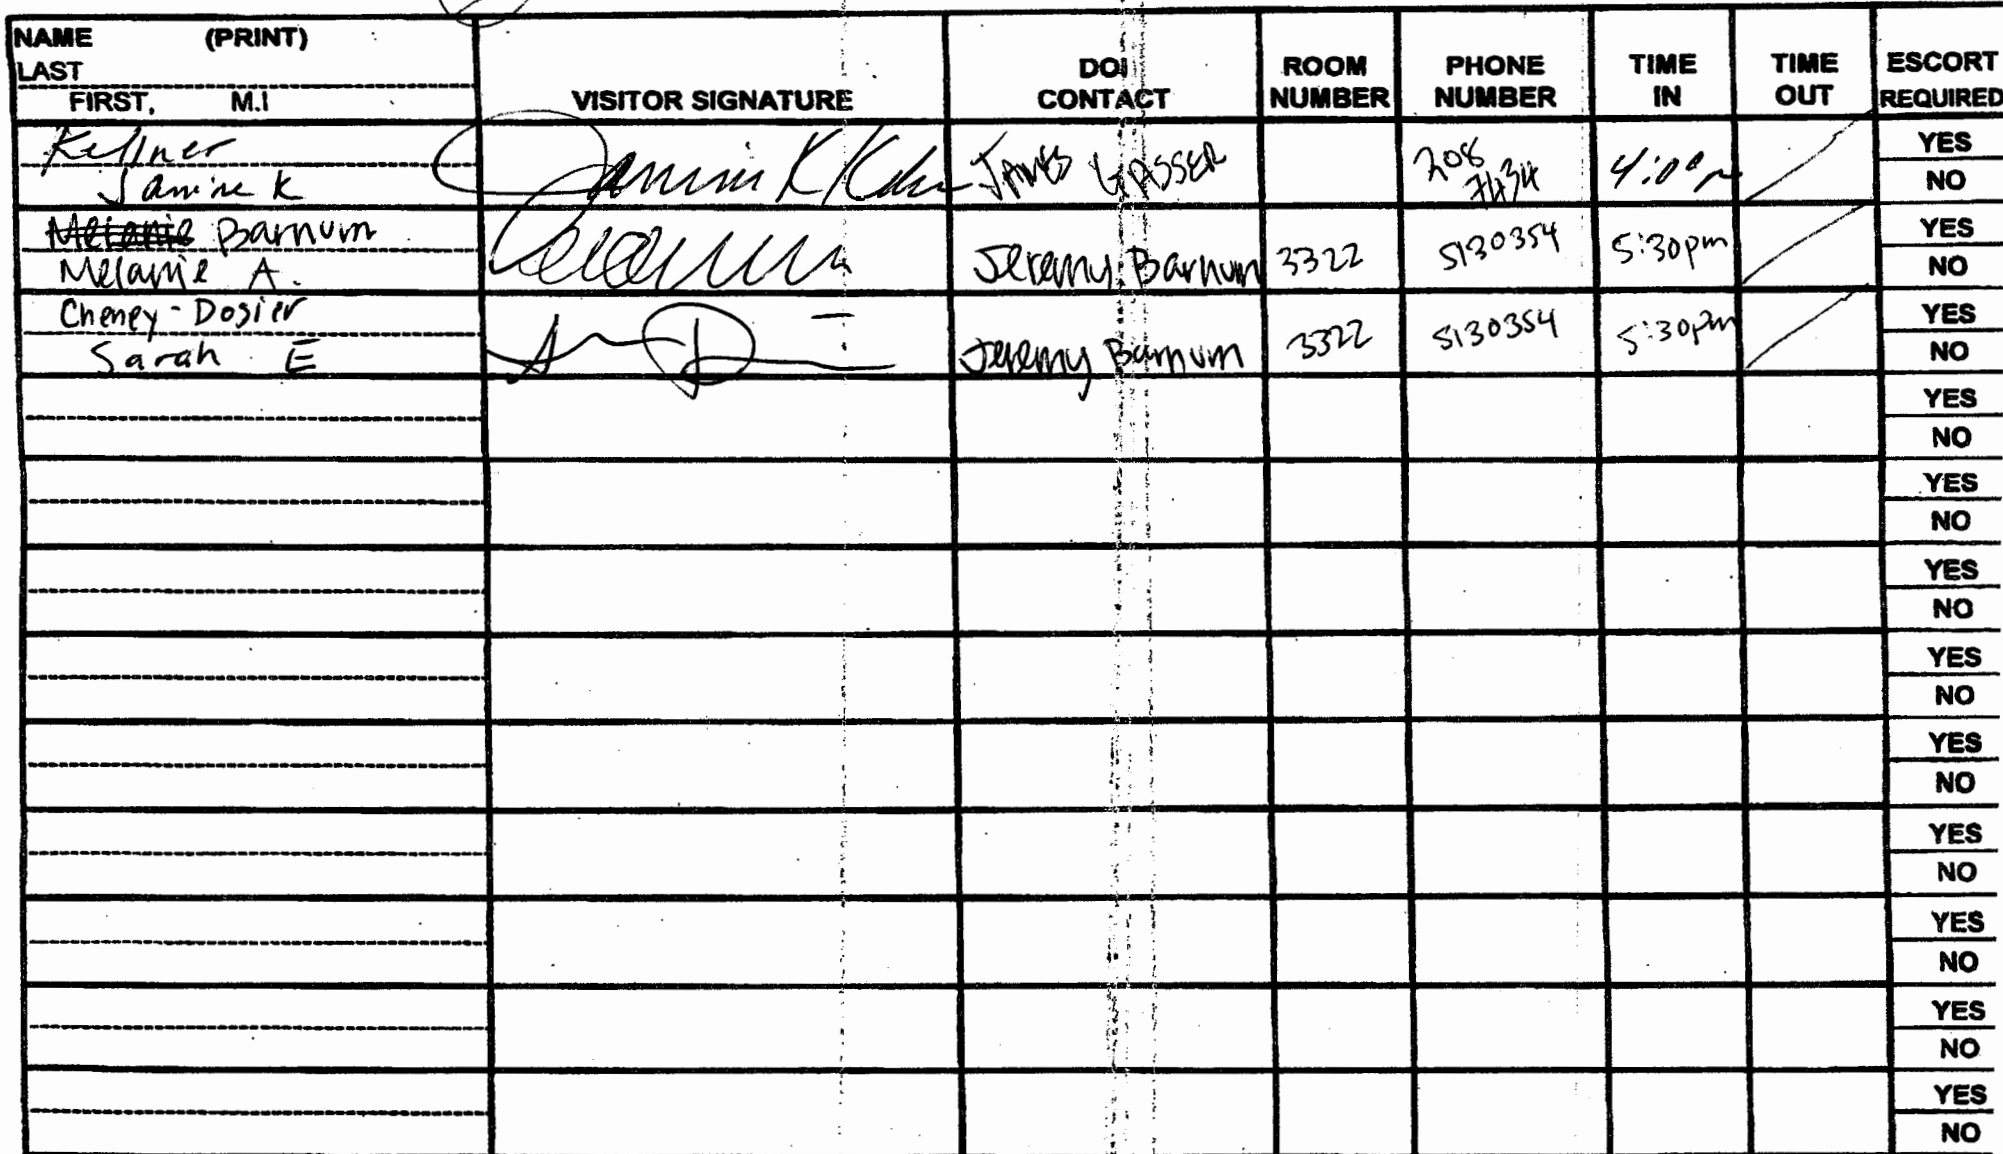 NAME (PRINT)
LAST
FIRST, M.I
VISITOR SIGNATURE
DOI
CONTACT
ROOM
NUMBER
PHONE
NUMBER
TIME
IN
TIME
OUT
ESCORT
REQUIRED
Kellner
Janine K
JAMES GASSER
208
7434
4:00pm
YES
NO
Melanie Barnum
Melanie A.
Jeremy Barnum
3322
5130354
5:30pm
YES
NO
Cheney-Dosier
Sarah E
Jeremy Barnum
3322
5130354
5:30pm
YES
NO
YES
NO
YES
NO
YES
NO
YES
NO
YES
NO
YES
NO
YES
NO
YES
NO
YES
NO